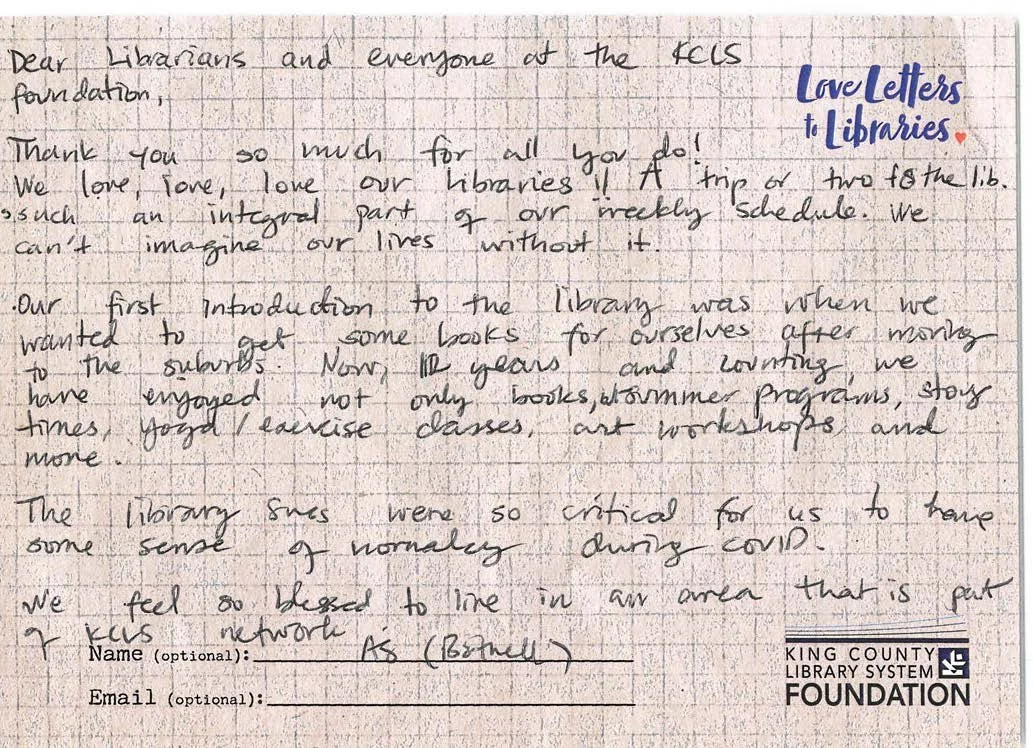 Dear Librarians and everyone at the KCLS
foundation,
Love Letters
to Libraries.
Thank you so much for all you do!
We love, love, love our libraries!! A trip or two to the lib.
is such an integral part of our weekly schedule. We
can't imagine our lives without it.
Our first introduction to the library was when we
wanted to get some books for ourselves after moving
to the suburbs. Now, 12 years and counting, we
have enjoyed not only books, summer programs, story
times, yoga/exercise classes, art workshops and
more.
The library were so critical for us to have
some sense of normalcy during COVID.
We feel so blessed to live in an area that is part
of KCLS network
Name (optional): (Bothell)
Email (optional):
KING COUNTY
LIBRARY SYSTEM
FOUNDATION